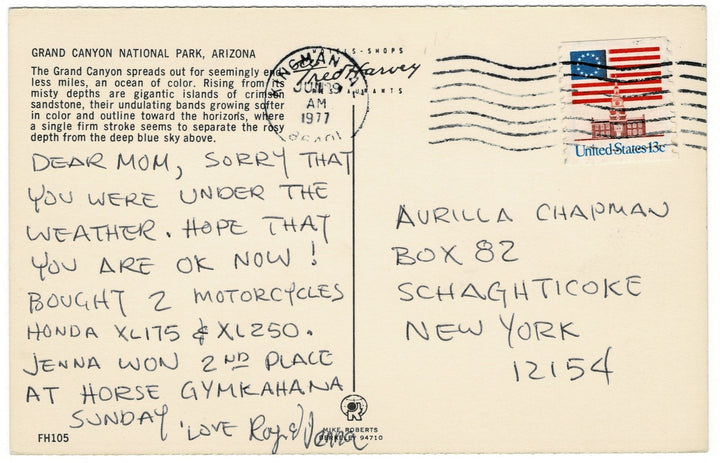 GRAND CANYON NATIONAL PARK, ARIZONA
The Grand Canyon spreads out for seemingly end-
less miles, an ocean of color. Rising from its
misty depths are gigantic islands of crimson
sandstone, their undulating bands growing softer
in color and outline toward the horizons, where
a single firm stroke seems to separate the rosy
depth from the deep blue sky above.
SHOPS
Fred Harvey
KINGMAN
JUN
AM
1977
United States 13c
DEAR MOM, SORRY THAT
YOU WERE UNDER THE
WEATHER. HOPE THAT
YOU ARE OK NOW!
BOUGHT 2 MOTORCYCLES
HONDA XL175 & XL250.
JENNA WON 2ND PLACE
AT HORSE GYMKAHANA
SUNDAY 'LOVE Roy & Jenna
AURILLA CHAPMAN
BOX 82
SCHAGHTICOKE
NEW YORK
12154
FH105
MIKE ROBERTS
BERKELEY 94710